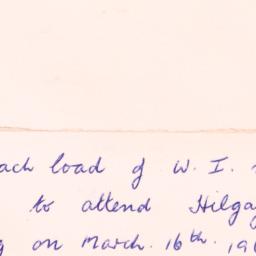 ach load of W. I.
to attend Hilga
on March. 16th. 196